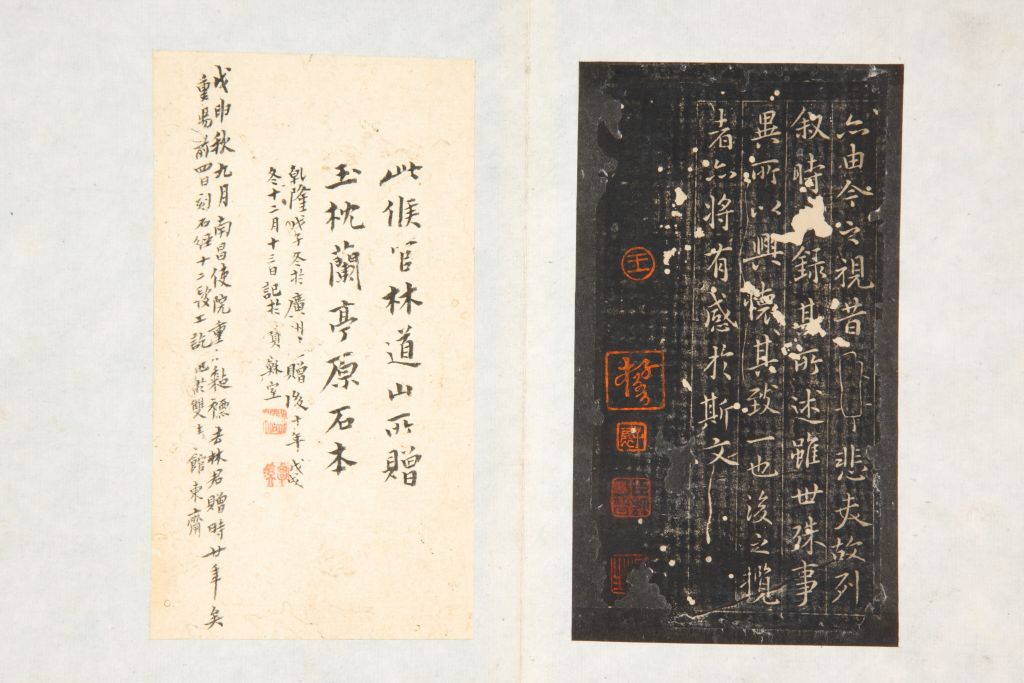 亦由今之視昔悲夫故列
叙時錄其所述雖世殊事
異所以興懷其致一也後之攬
者亦將有感於斯文
王
此候官林道山所贈
玉枕蘭亭原石本
乾隆戊子冬於廣州贈後十年戊戌
冬十二月十三日記於寶蘇室
戊申秋九月南昌使院重裝褾去林君贈時廿年矣
重陽前四日刻石經十二段工訖
東齋